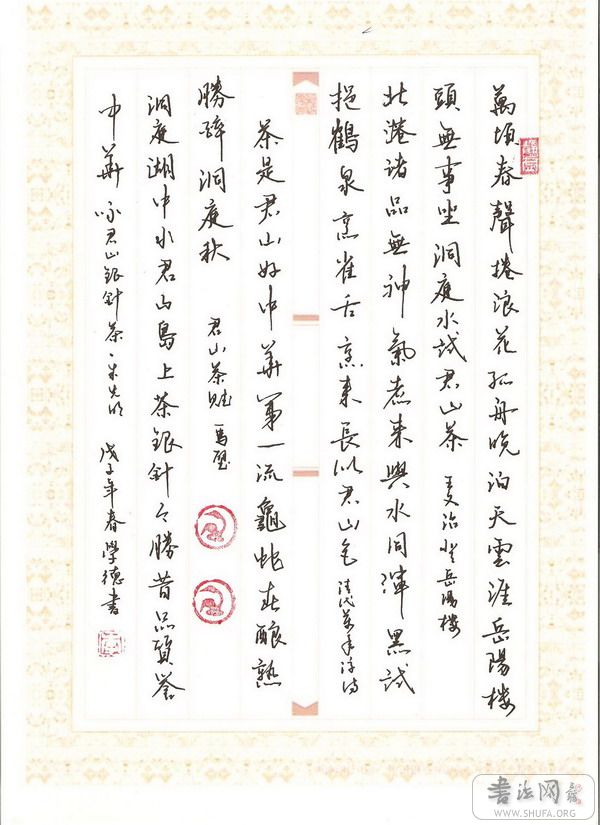 萬頃春聲捲浪花孤舟晚泊天雲涯岳陽樓
頭無事坐洞庭水試君山茶 王文治登岳陽樓
北港诸品無神氣煮来與水同渾黑試
挹鶴泉烹雀舌烹来長似君山色 清代萬年淳诗
茶是君山好中華第一流龜蛇春酿熟
勝醉洞庭秋 君山茶赋 馬璧
洞庭湖中水君山島上茶银針今勝昔品質誉
中華 咏君山银針茶 戊子年春學德書
書法网
WWW.SHUFA.ORG